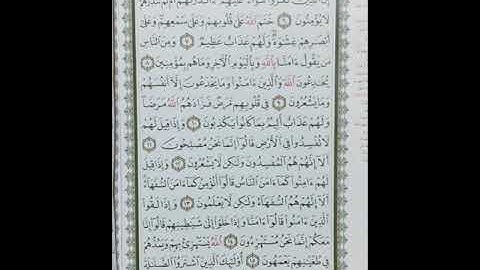 إن الذين كفروا سواء عليهم ءأنذرتهم أم لم تنذرهم
لا يؤمنون ٦ ختم الله على قلوبهم وعلى سمعهم وعلى
أبصرهم غشوة ولهم عذاب عظيم ٧ ومن الناس
من يقول ءامنا بالله وباليوم الآخر وما هم بمؤمنين ٨
يخدعون الله والذين ءامنوا وما يخدعون إلا أنفسهم
وما يشعرون ٩ في قلوبهم مرض فزادهم الله مرضا
ولهم عذاب أليم بما كانوا يكذبون ١٠ وإذا قيل لهم
لا تفسدوا في الأرض قالوا إنما نحن مصلحون ١١
ألا إنهم هم المفسدون ولكن لا يشعرون ١٢ وإذا قيل
لهم ءامنوا كما ءامن الناس قالوا أنؤمن كما ءامن السفهاء
ألا إنهم هم السفهاء ولكن لا يعلمون ١٣ وإذا لقوا
الذين ءامنوا قالوا ءامنا وإذا خلوا إلى شيطينهم قالوا إنا
معكم إنما نحن مستهزءون ١٤ الله يستهزئ بهم ويمدهم
في طغينهم يعمهون ١٥ أولئك الذين اشتروا الضللة